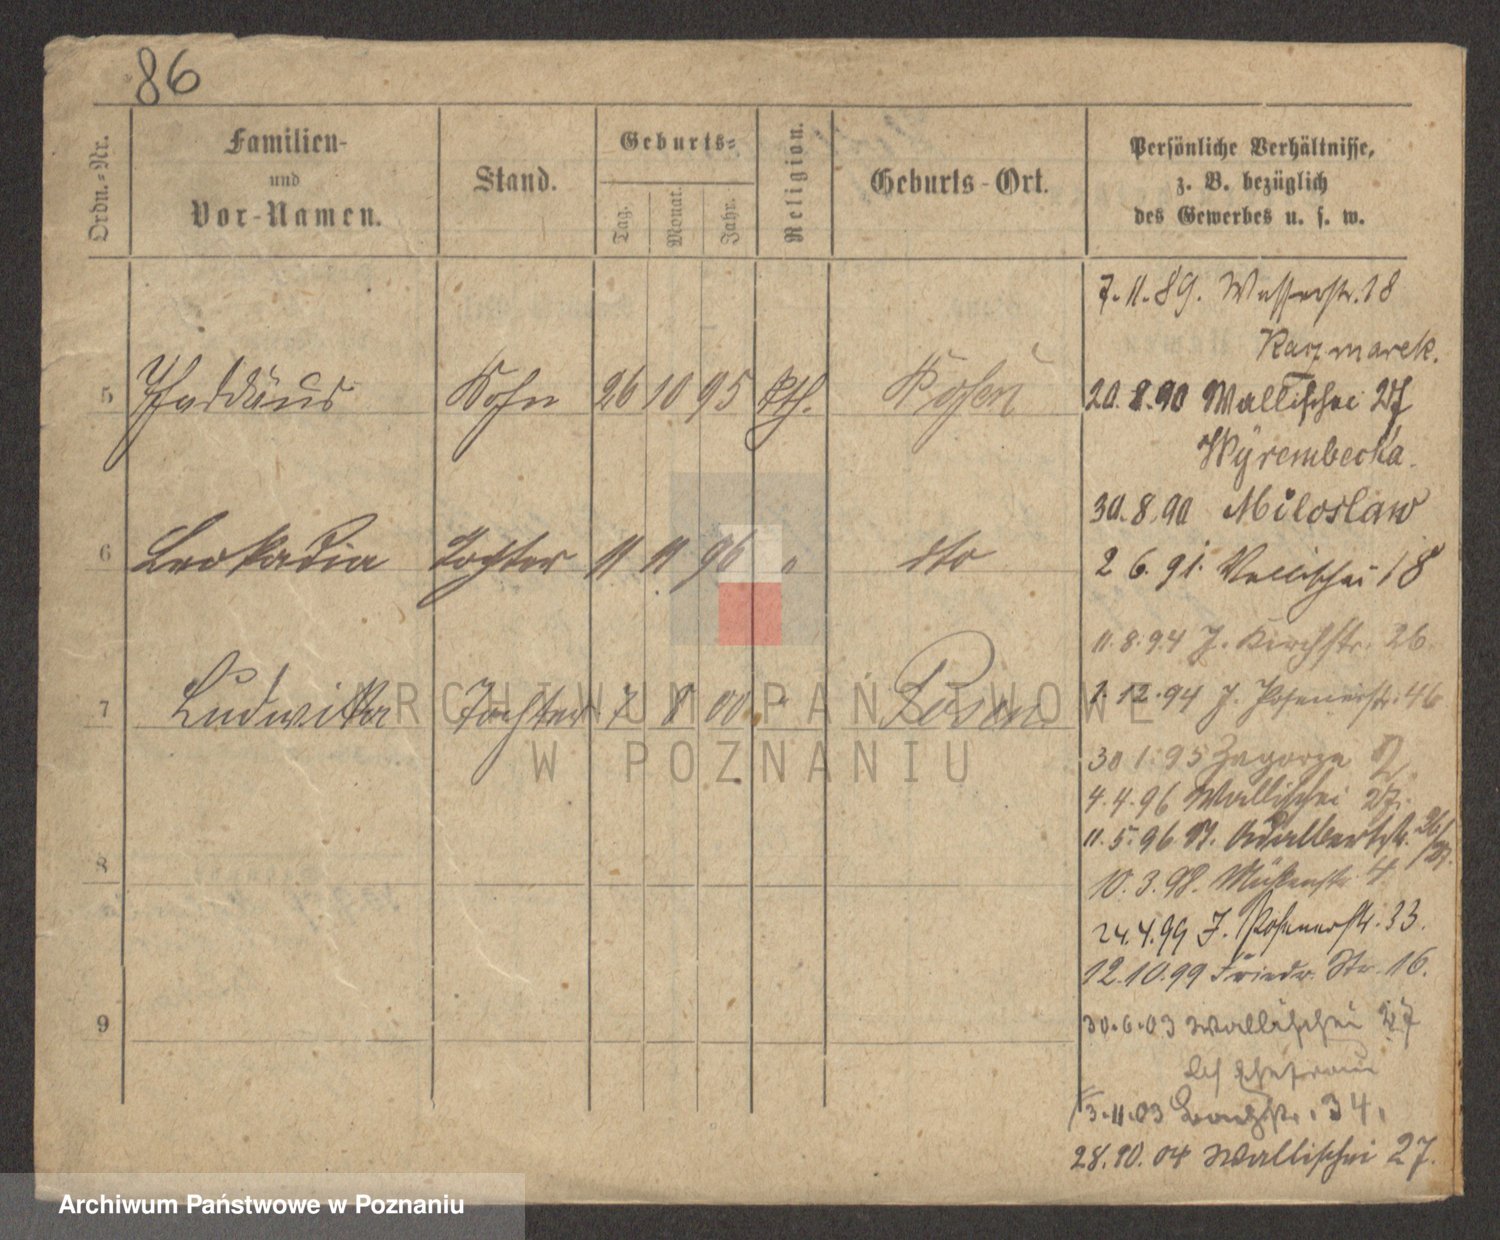 86
Ordn.-Nr.
Familien-
und
Vor-Namen.
Stand.
Geburts-
Tag.
Monat.
Jahr.
Religion.
Geburts-Ort.
Persönliche Verhältnisse,
z. B. bezüglich
des Gewerbes u. s. w.
7.11.89. Wasserstr. 18
Kaczmarek.
5 Thaddäus Sohn 26 10 95 kth. Posen
20.8.90 Wallischei 27
Wyrembecka.
30.8.90 Miloslaw
6 Leokadia Tochter 11 11 96 " dto
2 6.91. Wallischei 18
11.8.94 J. Kirchstr. 26.
7 Ludwika Tochter 7 8 00 " Posen
1.12.94 J. Posenerstr. 46
30 1.95 Zagorze
4.4.96 Wallischei 27.
11.5.96 St. Adalbertstr. 26/27.
8
10.3.98. Mühlenstr. 4
24.4.99 J. Posenerstr. 33.
12.10.99 Friedr. Str. 16.
9
30.6.03 Wallischei 27
Ehefrau
3.11.03 34.
28.10.04 Wallischei 27.
ARCHIWUM PAŃSTWOWE
W POZNANIU
Archiwum Państwowe w Poznaniu